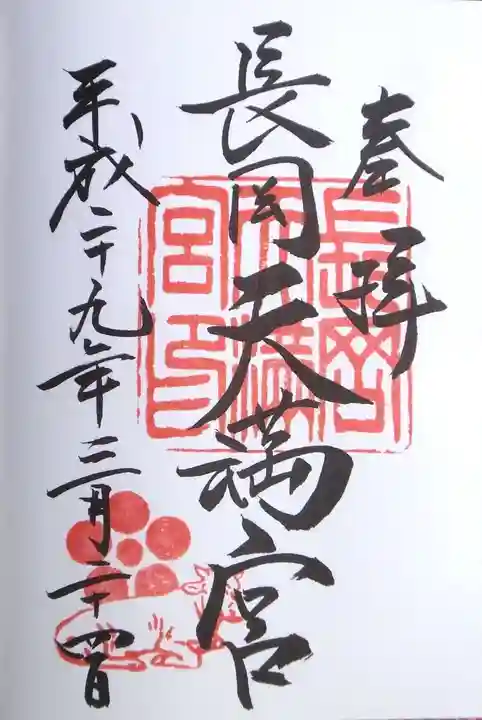 奉拝
長岡天満宮
長岡天満宮印
平成二十九年三月二十四日